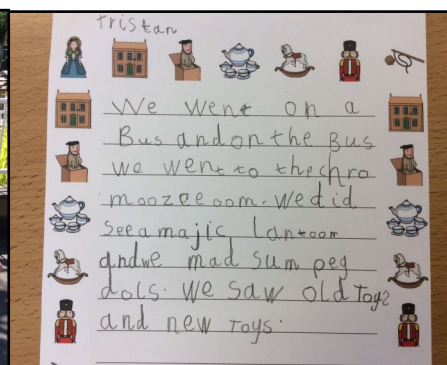 tristan
We went on a
Bus and on the Bus
we went to the chro
moozeeoom. We did
see a majic lantoom
and we mad sum peg
dols. We saw old Toys
and new Toys.